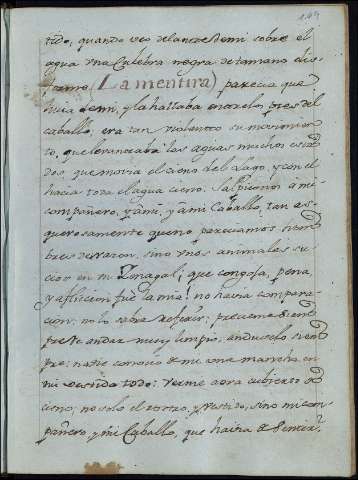 tido, quando veo delante de mi sobre el
agua vna Culebra negra de tamaño dis-
forme (La mentira) parecia que
huia de mi, y la hallaba entre los pies del
caballo, era tan violento su movimien-
to, que levantaba las aguas muchos esta-
dos, que movia el cieno del Lago, y con el
hacia toda el agua cieno. Salpicónos à mi
compañero, y à mi, y à mi Caballo, tan as-
querosamente que no pareciamos hom-
bres de razon, sino vnos animales su-
cios en vn zinagal; que congoja, pena,
y afliccion fuè la mia! no havia compara-
cion; no lo sabrè referir; precième siem-
pre de andar muy limpio, anduvelo siem-
pre: nadie conociò de mi vna mancha en
mi vestido todo: verme aora cubierto de
cieno; no solo el rostro, y vestido, sino mi com-
pañero, y mi Caballo, que havia de sentir?